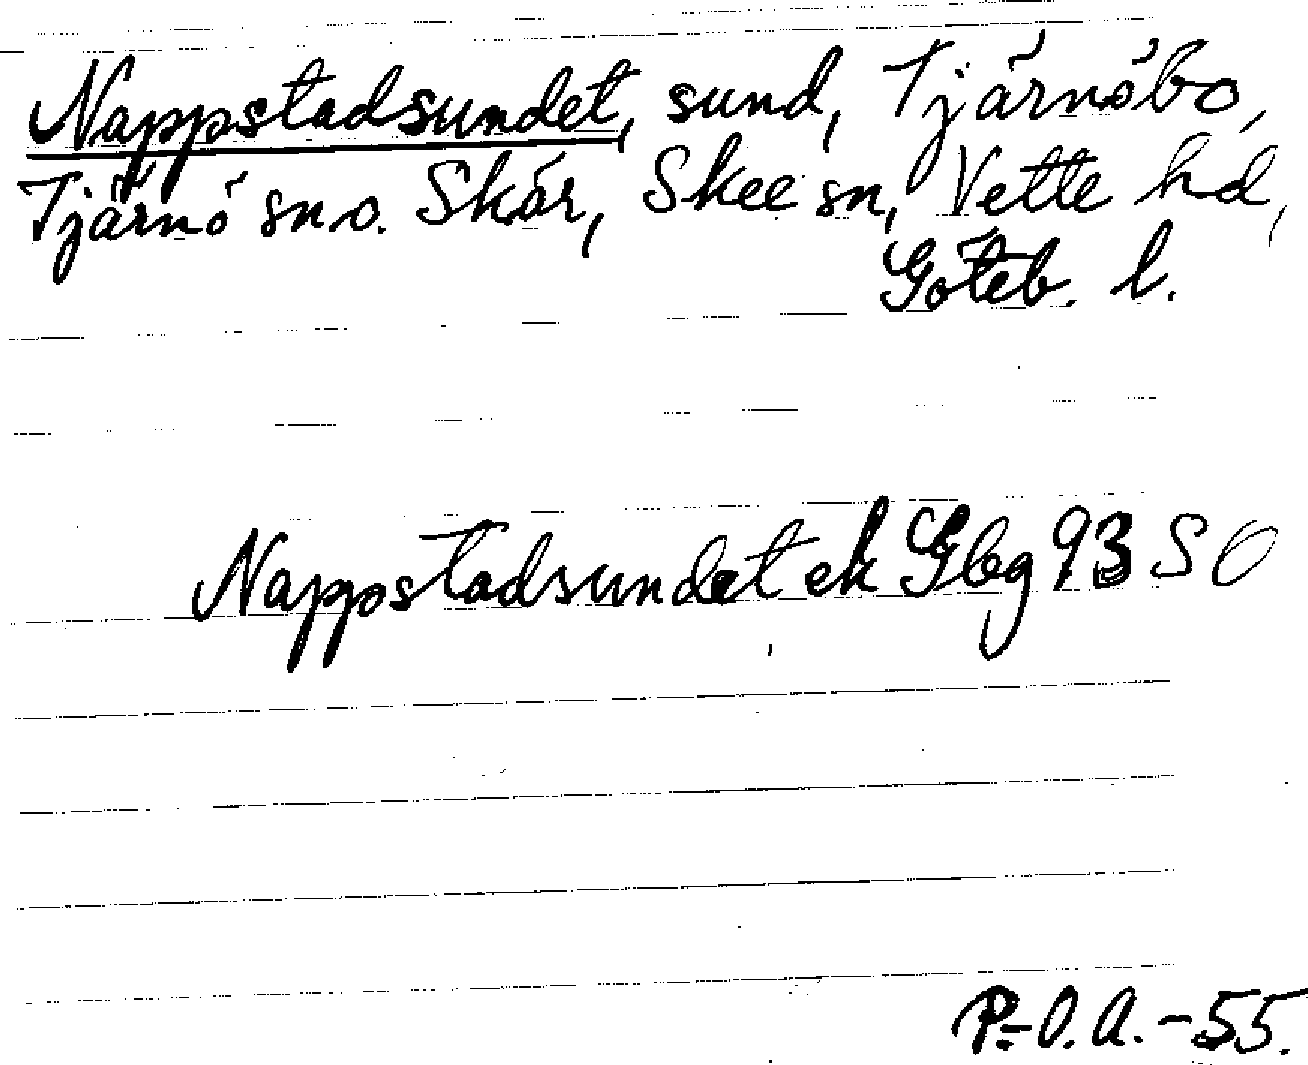 Nappstadsundet, sund, Tjärnöbo,
Tjärnö sn o. Skör, Skee sn, Vette hd,
Göteb. l.
Nappstadsundet ek Gbg 93 SO
P.-O. A. -55.